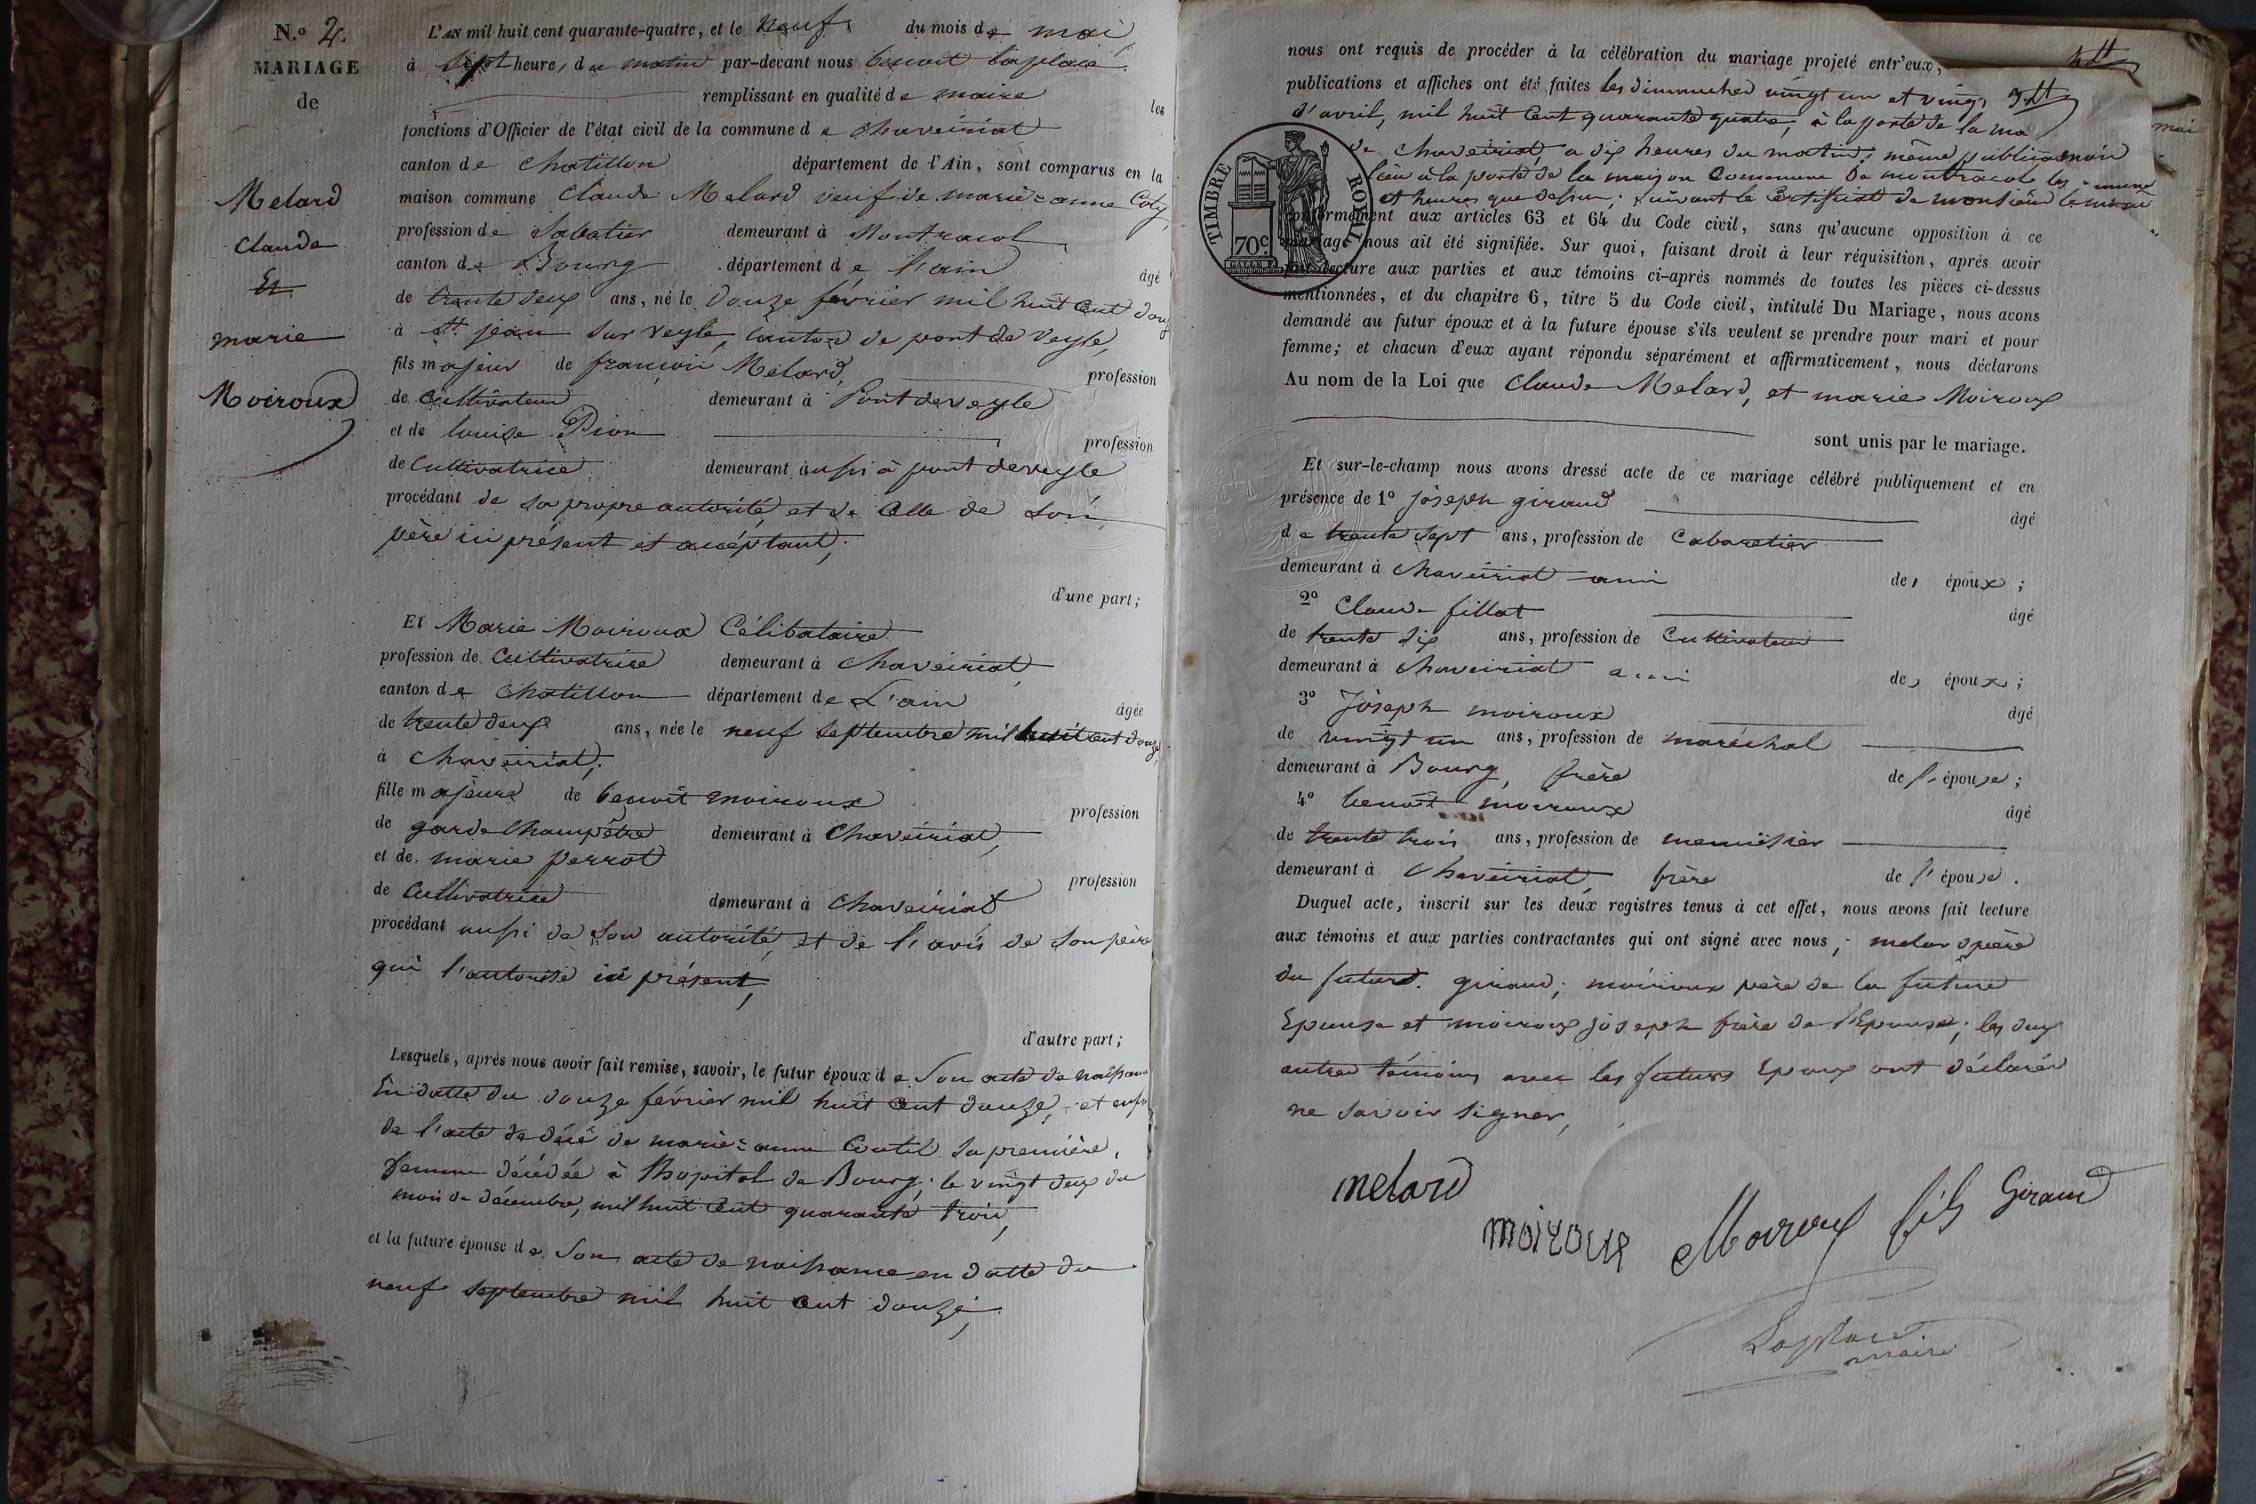 N.º 2.
MARIAGE
de
Melard
Claude
Et
marie
Moiroux
L'AN mil huit cent quarante-quatre, et le neuf du mois de mai
à sept heures du matin par-devant nous benoit laplace
remplissant en qualité de maire les
fonctions d'Officier de l'état civil de la commune de Chaveiriat
canton de Chatillon département de l'Ain, sont comparus en la
maison commune Claude Melard veuf de marie=anne
profession de Sabatier demeurant à Montracol
canton de Bourg département de l'ain âgé
de trente deux ans, né le douze février mil huit cent douze
à st. jean sur veyle, canton de pont de veyle,
fils majeur de françois Melard, profession
de Cultivateur demeurant à Pont de veyle
et de louise Pion profession
de Cultivatrice demeurant aussi à pont de veyle
procédant de sa propre autorité, et de celle de son
père ici présent et acceptant;
d'une part;
Et Marie Moiroux Célibataire
profession de Cultivatrice demeurant à Chaveiriat,
canton de Chatillon département de L'ain âgée
de trente deux ans, née le neuf septembre mil huit cent douze,
à Chaveiriat;
fille majeure de benoit moiroux profession
de garde Champêtre demeurant à Chaveiriat,
et de marie perrot profession
de Cultivatrice demeurant à Chaveiriat
procédant aussi de son autorité, et de l'avis de son père
qui l'autorise ici présent,
d'autre part;
Lesquels, après nous avoir fait remise, savoir, le futur époux de Son acte de naissance
En datte du douze février mil huit cent douze, et enfin
de l'acte de décé de marie=anne Coutil sa première
femme décédée à l'hopital de Bourg; le vingt deux du
mois de décembre, mil huit cent quarante trois,
et la future épouse de Son acte de naissance en datte du
neuf septembre mil huit cent douze,
nous ont requis de procéder à la célébration du mariage projeté entr'eux,
publications et affiches ont été faites les dimanches vingt un et vingt
d'avril, mil huit cent quarante quatre, à la porte de la
de Chaveiriat, a dix heures du matin; même publication
lieu à la porte de la maison Commune de montracol les
et heures que dessus; suivant le Certificat de monsieur le
TIMBRE ROYAL
70c
conformément aux articles 63 et 64 du Code civil, sans qu'aucune opposition à ce
mariage nous ait été signifiée. Sur quoi, faisant droit à leur réquisition, après avoir
fait lecture aux parties et aux témoins ci-après nommés de toutes les pièces ci-dessus
mentionnées, et du chapitre 6, titre 5 du Code civil, intitulé Du Mariage, nous avons
demandé au futur époux et à la future épouse s'ils veulent se prendre pour mari et pour
femme; et chacun d'eux ayant répondu séparément et affirmativement, nous déclarons
Au nom de la Loi que Claude Melard, et marie Moiroux
sont unis par le mariage.
Et sur-le-champ nous avons dressé acte de ce mariage célébré publiquement et en
présence de 1º Joseph giraud âgé
de trente sept ans, profession de Cabaretier
demeurant à Chaveiriat ami des époux;
2º Claude fillat âgé
de trente six ans, profession de Cultivateur
demeurant à Chaveiriat ami des époux;
3º Joseph moiroux âgé
de vingt un ans, profession de maréchal
demeurant à Bourg, frère de l'épouse;
4º benoit moiroux âgé
de trente trois ans, profession de menuisier
demeurant à Chaveiriat, frère de l'épouse.
Duquel acte, inscrit sur les deux registres tenus à cet effet, nous avons fait lecture
aux témoins et aux parties contractantes qui ont signé avec nous; melard père
du futur. giraud; moiroux père de la future
Epouse et moiroux joseph frère de l'Epouse; les deux
autres témoins avec les futurs Epoux ont déclarés
ne savoir signer,
melard
moiroux
Moiroux fils
Giraud
Laplace
maire